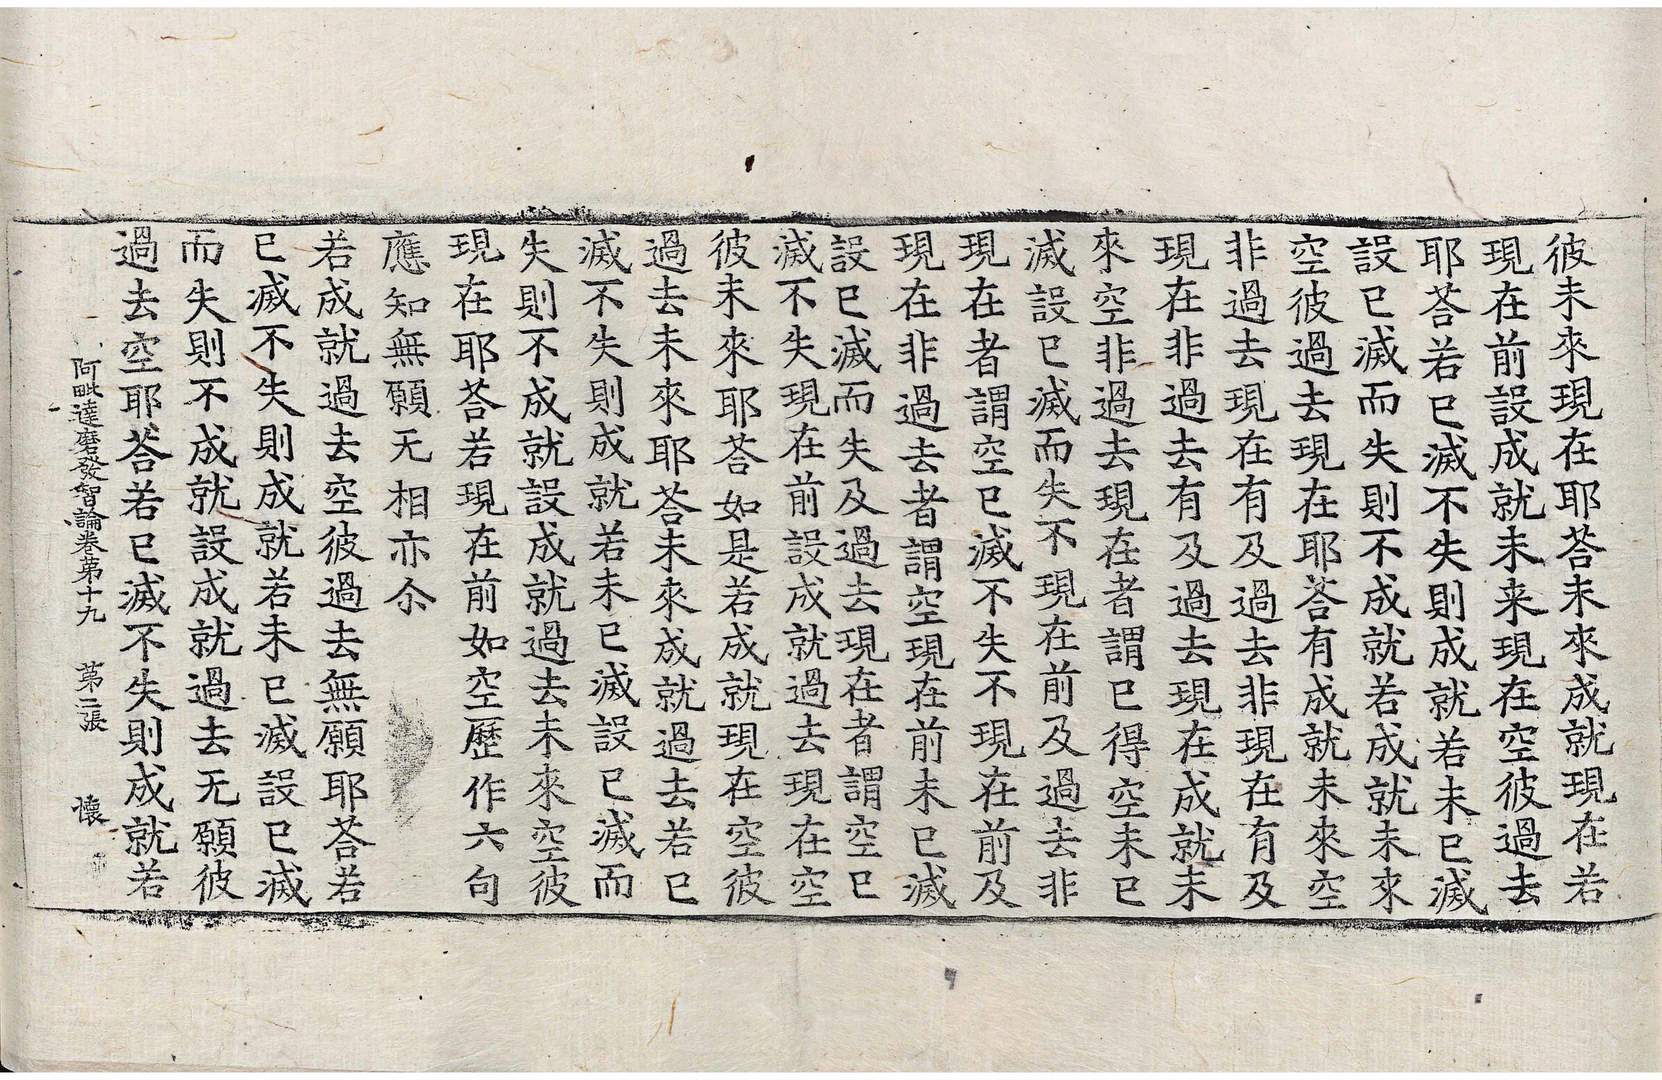 彼未來現在耶荅未來成就現在若
現在前設成就未来現在空彼過去
耶荅若已滅不失則成就若未已滅
設已滅而失則不成就若成就未來
空彼過去現在耶荅有成就未來空
非過去現在有及過去非現在有及
現在非過去有及過去現在成就未
來空非過去現在者謂已得空未已
滅設已滅而失不現在前及過去非
現在者謂空已滅不失不現在前及
現在非過去者謂空現在前未已滅
設已滅而失及過去現在者謂空已
滅不失現在前設成就過去現在空
彼未來耶荅如是若成就現在空彼
過去未來耶荅未來成就過去若已
滅不失則成就若未已滅設已滅而
失則不成就設成就過去未來空彼
現在耶荅若現在前如空歷作六句
應知無願无相亦尒
若成就過去空彼過去無願耶荅若
已滅不失則成就若未已滅設已滅
而失則不成就設成就過去无願彼
過去空耶荅若已滅不失則成就若
阿毗達磨發智論卷第十九 第二張 懐